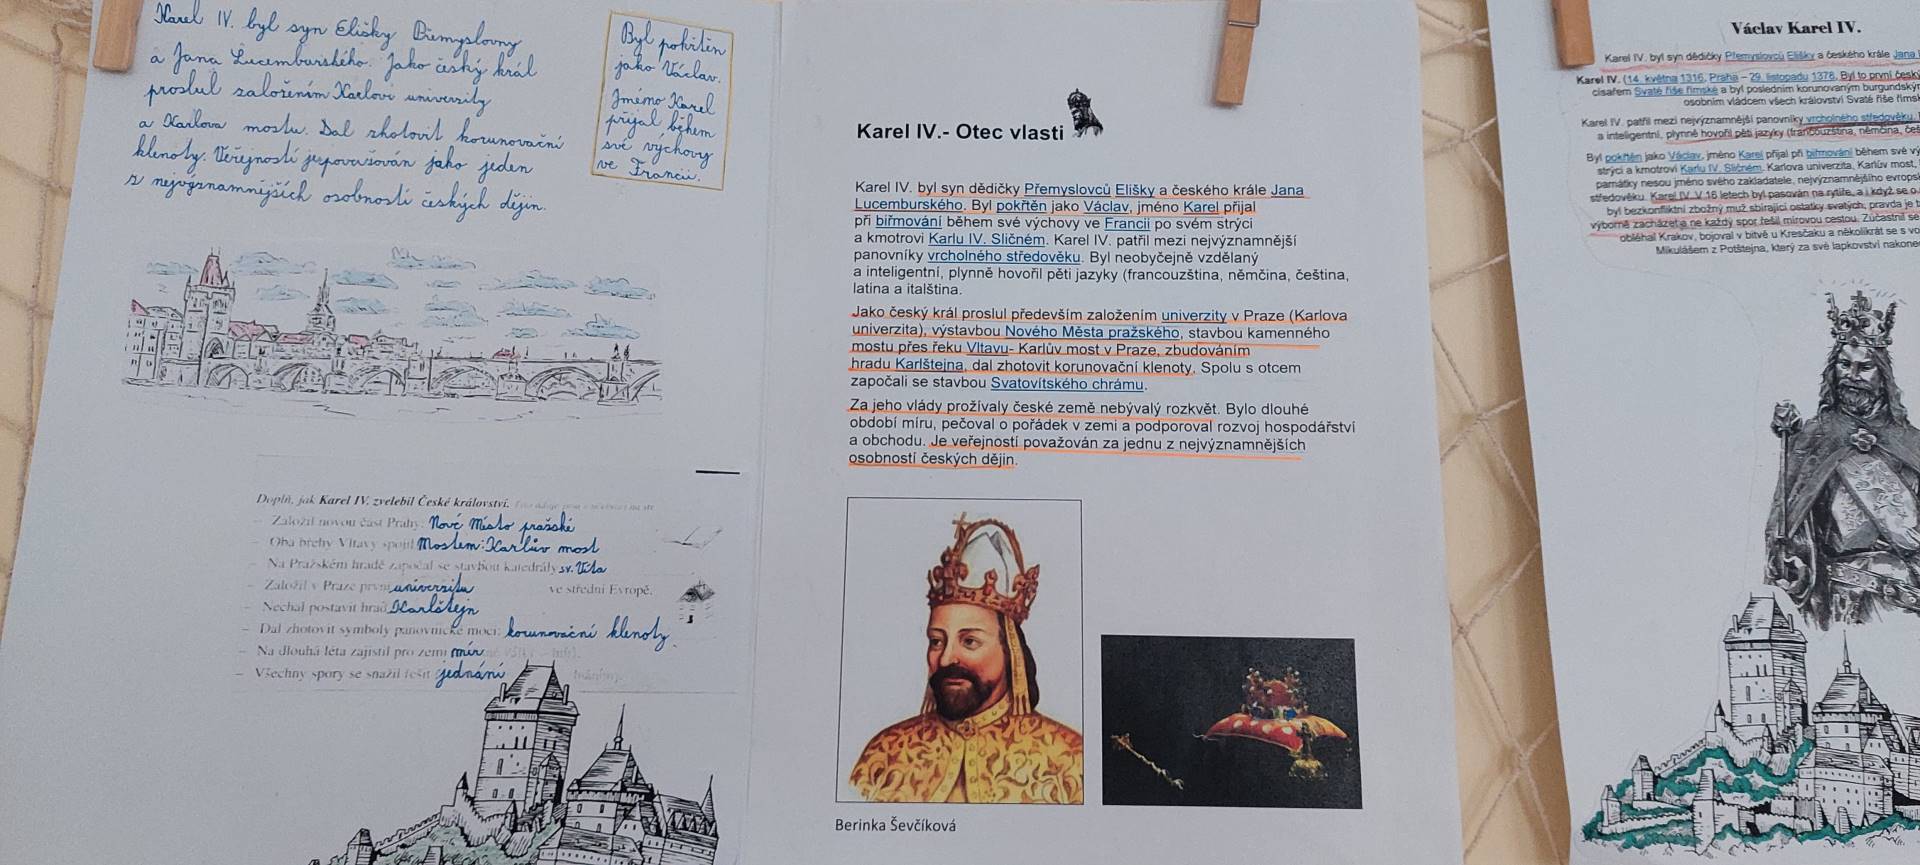 Karel IV. byl syn Elišky Přemyslovny
a Jana Lucemburského. Jako český král
proslul založením Karlovi univerzity
a Karlova mostu. Dal zhotovit korunovační
klenoty. Veřejností je považován jako jeden
z nejvýznamnějších osobností českých dějin.
Byl pokřtěn
jako Václav.
Jméno Karel
přijal během
své výchovy
ve Francii.
Doplň, jak Karel IV. zvelebil České království.
– Založil novou část Prahy: Nové Město pražské
– Oba břehy Vltavy spojil Mostem: Karlův most
– Na Pražském hradě započal se stavbou katedrály sv. Víta
– Založil v Praze první univerzitu ve střední Evropě.
– Nechal postavit hrad Karlštejn
– Dal zhotovit symboly panovnické moci: korunovační klenoty.
– Na dlouhá léta zajistil pro zemi mír
– Všechny spory se snažil řešit jednání
Karel IV.- Otec vlasti
Karel IV. byl syn dědičky Přemyslovců Elišky a českého krále Jana
Lucemburského. Byl pokřtěn jako Václav, jméno Karel přijal
při biřmování během své výchovy ve Francii po svém strýci
a kmotrovi Karlu IV. Sličném. Karel IV. patřil mezi nejvýznamnější
panovníky vrcholného středověku. Byl neobyčejně vzdělaný
a inteligentní, plynně hovořil pěti jazyky (francouzština, němčina, čeština,
latina a italština.
Jako český král proslul především založením univerzity v Praze (Karlova
univerzita), výstavbou Nového Města pražského, stavbou kamenného
mostu přes řeku Vltavu- Karlův most v Praze, zbudováním
hradu Karlštejna, dal zhotovit korunovační klenoty. Spolu s otcem
započali se stavbou Svatovítského chrámu.
Za jeho vlády prožívaly české země nebývalý rozkvět. Bylo dlouhé
období míru, pečoval o pořádek v zemi a podporoval rozvoj hospodářství
a obchodu. Je veřejností považován za jednu z nejvýznamnějších
osobností českých dějin.
Berinka Ševčíková
Václav Karel IV.
Karel IV. byl syn dědičky Přemyslovců Elišky a českého krále Jana
Karel IV. (14. května 1316, Praha – 29. listopadu 1378, Byl to první
císařem Svaté říše římské a byl posledním korunovaným
osobním vládcem všech království Svaté říše
Karel IV. patřil mezi nejvýznamnější panovníky vrcholného středověku.
a inteligentní, plynně hovořil pěti jazyky (francouzština, němčina,
Byl pokřtěn jako Václav, jméno Karel přijal při biřmování během své
strýci a kmotrovi Karlu IV. Sličném. Karlova univerzita, Karlův most,
památky nesou jméno svého zakladatele, nejvýznamnějšího
středověku. Karel IV. V 16 letech byl pasován na rytíře, a i když se o
byl bezkonfliktní zbožný muž sbírající ostatky svatých, pravda je
výborně zacházet a ne každý spor řešil mírovou cestou. Zúčastnil se
obléhal Krakov, bojoval v bitvě u Kresčaku a několikrát se s
Mikulášem z Potštejna, který za své lapkovství